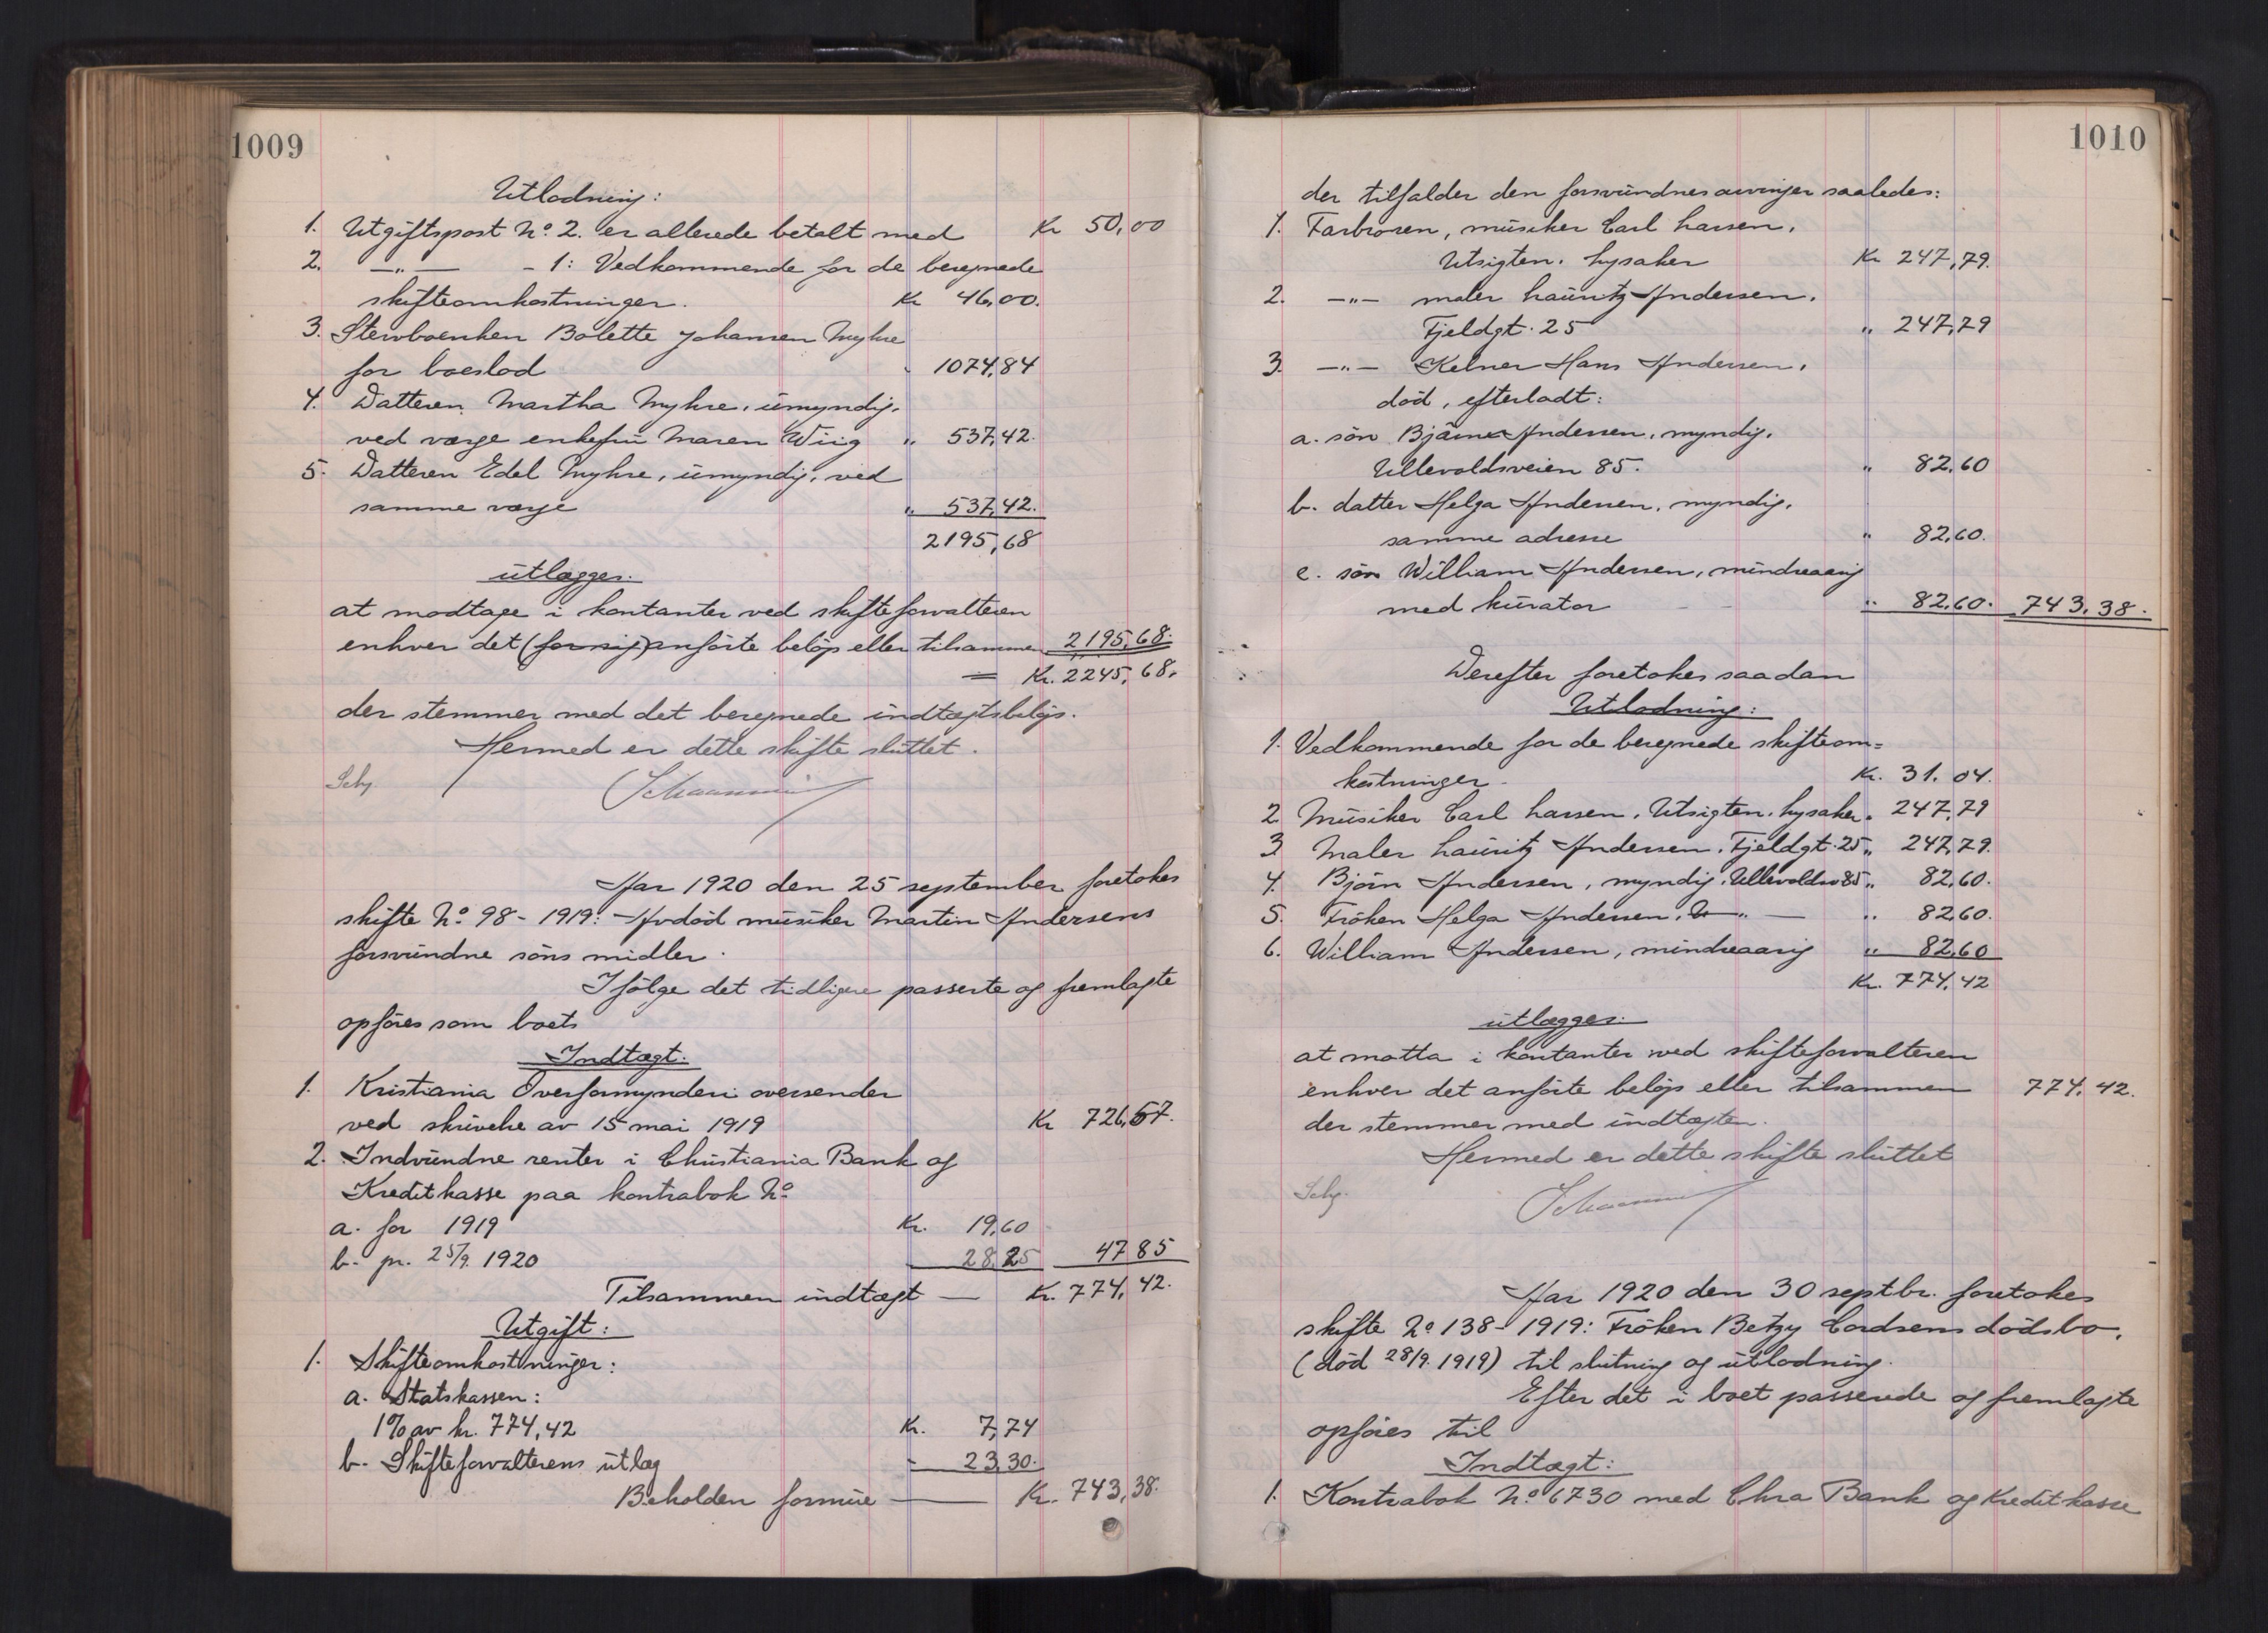 1009
Utlodning:
1. Utgiftspost No. 2. er allerede betalt med Kr 50,00
2. —„— - 1: Vedkommende for de beregnede
skifteomkostninger. Kr 46,00.
3. Stervboenken Bolette Johansen Myhre
for boeslod - 1074,84
4. Datteren Martha Myhre, umyndig,
ved verge enkefru Maren Wiig „ 537,42.
5. Datteren Edel Myhre, umyndig, ved
samme verge „ 537,42.
2195,68
utlægges:
at modtage i kontanter ved skifteforvalteren
enhver det (for sig) anførte beløp eller tilsammen 2195,68.
= Kr. 2245,68.
der stemmer med det beregnede indtægtsbeløp.
Hermed er dette skifte sluttet.
Aar 1920 den 25 september foretokes
skifte No. 98 - 1919: Avdød musiker Martin Andersens
forsvundne søns midler.
Ifølge det tidligere passerte og fremlagte
opføres som boets
Indtægt:
1. Kristiania Overformynderi oversender
ved skrivelse av 15 mai 1919 Kr 726,57.
2. Indvundne renter i Christiania Bank og
Kreditkasse paa kontrabok No.
a. for 1919 Kr. 19,60
b. pr. 25/9. 1920 28,25 47 85
Tilsammen indtægt — Kr. 774,42.
Utgift:
1. Skifteomkostninger:
a. Statskassen:
1% av kr. 774,42 Kr. 7,74
b. Skifteforvalterens utlæg - 23,30.
Beholden formue — Kr. 743,38.
1010
der tilfalder den forsvundnes arvinger saaledes:
1. Farbroren, musiker Carl Larsen,
Utsigten, Lysaker Kr 247,79.
2. —„— maler Lauritz Andersen,
Fjeldgt. 25 „ 247,79
3. —„— Kelner Hans Andersen,
død, efterladt:
a. søn Bjarne Andersen, myndig,
Ullevoldsveien 85. „ 82,60
b. datter Helga Andersen, myndig,
samme adresse „ 82,60.
c. søn William Andersen, mindreaarig
med kurator „ 82,60. 743,38.
Derefter foretokes saadan
Utlodning:
1. Vedkommende for de beregnede skifteom=
kostninger. Kr. 31.04.
2 Musiker Carl Larsen, Utsigten, Lysaker „ 247,79
3 Maler Lauritz Andersen, Fjeldgt. 25 „ 247,79.
4. Bjørn Andersen, myndig, Ullevoldsv 85 „ 82,60.
5. Frøken Helga Andersen, —„— „ 82,60.
6. William Andersen, mindreaarig „ 82,60
Kr. 774,42
utlægges:
at motta i kontanter ved skifteforvalteren
enhver det anførte beløp eller tilsammen 774,42.
der stemmer med indtægten.
Hermed er dette skifte sluttet
Aar 1920 den 30 septbr. foretokes
skifte No 138 - 1919: Frøken Betzy Cordsens dødsbo,
(død 28/9. 1919) til slutning og utlodning.
Efter det i boet passerede og fremlagte
opføres til
Indtægt:
1. Kontrabok No. 6730 med Chra Bank og Kreditkasse